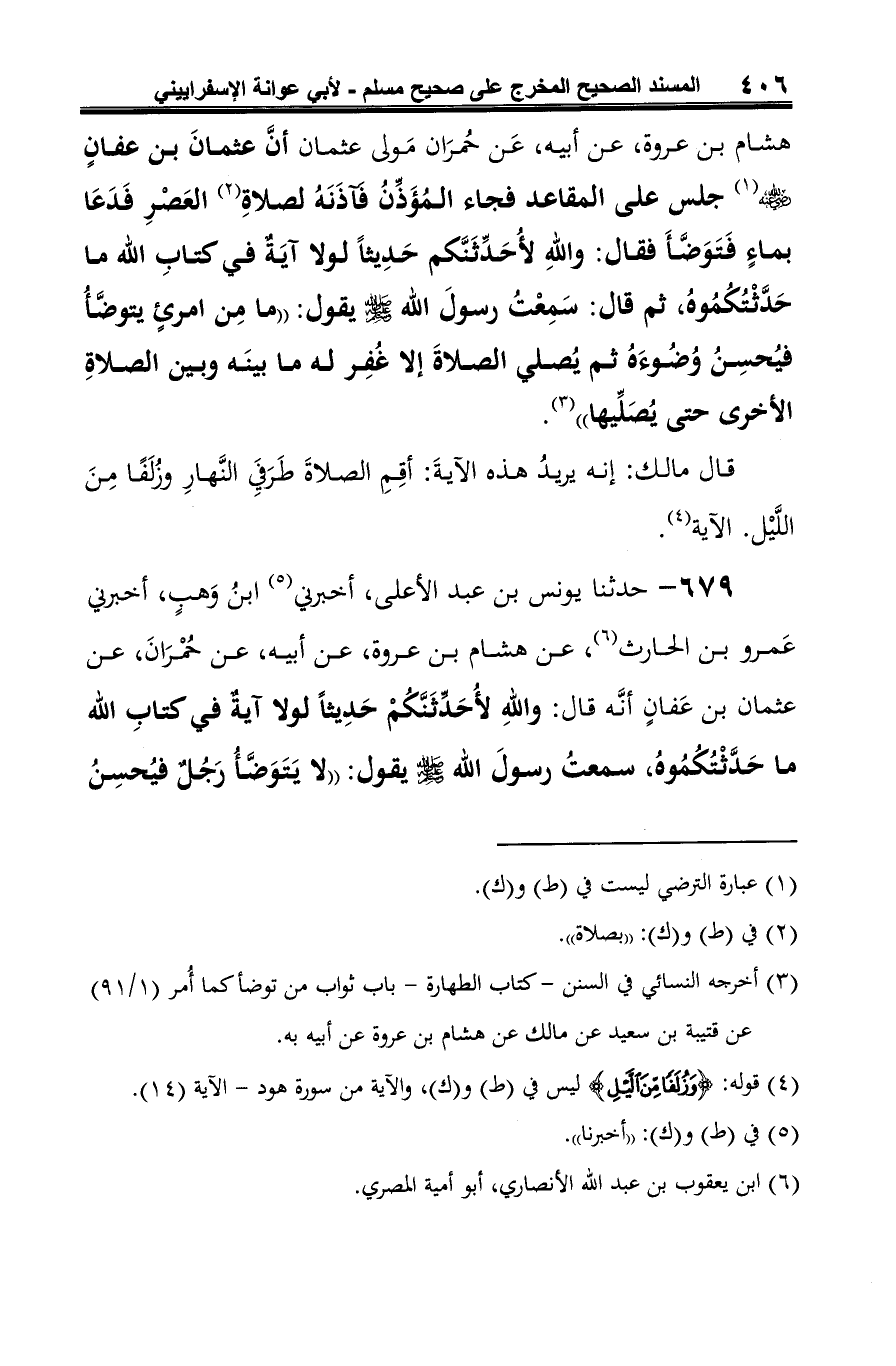 ٤٠٦ المسند الصحيح المخرج على صحيح مسلم - لأبي عوانة الإسفراييني
هشام بن عروة، عن أبيه، عَن حُمرَان مَولى عثمان أنَّ عثمانَ بن عفانٍ
رضي الله عنه (١) جلس على المقاعد فجاء المُؤَذِّنُ فَآذَنَهُ لصلاةِ(٢) العَصْرِ فَدَعَا
بماءٍ فَتَوَضَّأَ فقال: واللهِ لأُحَدِّثَنَّكم حَدِيثاً لولا آيَةٌ في كتابِ الله ما
حَدَّثْتُكُمُوهُ، ثم قال: سَمِعْتُ رسولَ الله ﷺ يقول: ((ما مِن امرئٍ يتوضَّأُ
فيُحسِنُ وُضُوءَهُ ثم يُصلي الصلاةَ إلا غُفِر له ما بينَه وبين الصلاةِ
الأخرى حتى يُصَلِّيها))(٣).
قال مالك: إنه يريدُ هذه الآيةَ: أقِمِ الصلاةَ طَرَفَيِ النَّهارِ وزُلَفًا مِنَ
اللَّيْل. الآية(٤).
٦٧٩- حدثنا يونس بن عبد الأعلى، أخبرني(٥) ابنُ وَهبٍ، أخبرني
عَمرو بن الحارث(٦)، عن هشام بن عروة، عن أبيه، عن حُمْرَانَ، عن
عثمان بن عَفانٍ أنَّه قال: واللهِ لأُحَدِّثَنَّكُمْ حَدِيثاً لولا آيةٌ في كتابِ الله
ما حَدَّثْتُكُمُوهُ، سمعتُ رسولَ الله ﷺ يقول: ((لا يَتَوَضَّأُ رَجُلٌ فيُحسِنُ
(١) عبارة الترضي ليست في (ط) و(ك).
(٢) في (ط) و(ك): ((بصلاة)).
(٣) أخرجه النسائي في السنن - كتاب الطهارة - باب ثواب من توضأ كما أُمر (٩١/١)
عن قتيبة بن سعيد عن مالك عن هشام بن عروة عن أبيه به.
(٤) قوله: ﴿وَزُلَفًا مِّنَ ٱلَّيْلِ﴾ ليس في (ط) و(ك)، والآية من سورة هود - الآية (١٤).
(٥) في (ط) و(ك): ((أخبرنا)).
(٦) ابن يعقوب بن عبد الله الأنصاري، أبو أمية المصري.